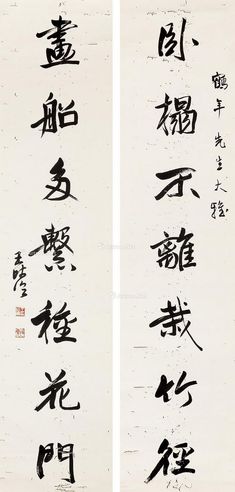 鶴年先生大雅
卧榻不離栽竹徑
畫船多繫種花門
王